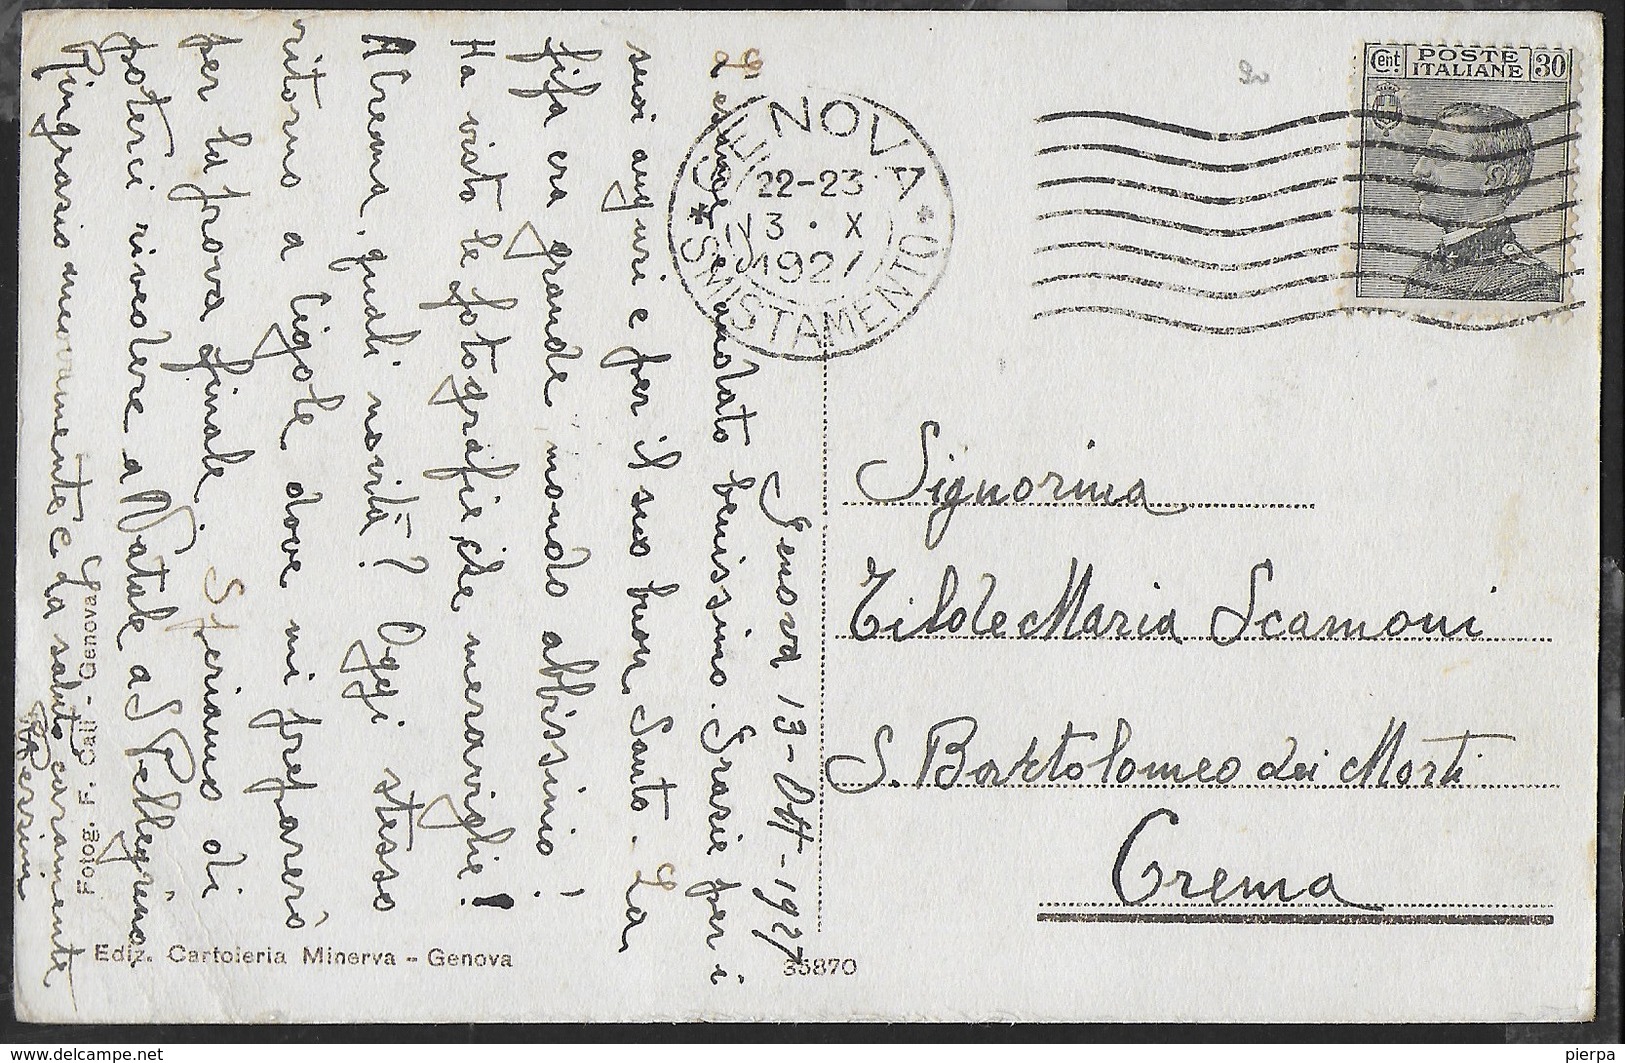 Genova 13-Ott-1927
L'esame è andato benissimo. Grazie per i
suoi auguri e per il suo buon Santo. La
fifa era grande mondo abbissino!
Ha visto le fotografie, che meraviglie!
A Crema, quali novità? Oggi stesso
ritorno a Cigole dove mi preparerò
per la prova finale. Speriamo di
poterci rivedere a Natale a S Pellegrino.
Ringrazio nuovamente e La saluto caramente
Fotog. F. Cali - Genova
Ediz. Cartoleria Minerva - Genova
35870
GENOVA
22-23
13 · X
1927
* SMISTAMENTO *
Cent. POSTE ITALIANE 30
Signorina
Maria Scamoni
S. Bartolomeo dei Morti
Crema
https://www.delcampe.net
pierpa